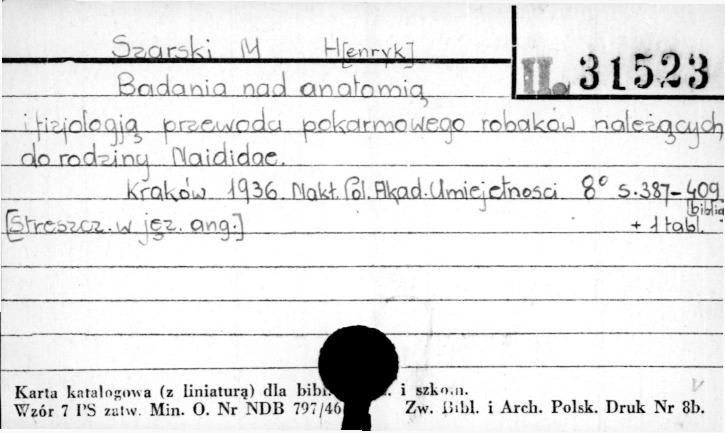 Szarski M H[enryk]
II. 31523
Badania nad anatomią
i fizjologją przewodu pokarmowego robaków należących
do rodziny Naididae.
Kraków 1936. Nakt. Pol. Akad. Umiejętnosci 8° s. 387-409
[biblig
[Streszcz. w jęz. ang.] + 1 tabl.
Karta katalogowa (z liniaturą) dla bibl. i szkoln.
Wzór 7 PS zatw. Min. O. Nr NDB 797/46 Zw. Bibl. i Arch. Polsk. Druk Nr 8b.